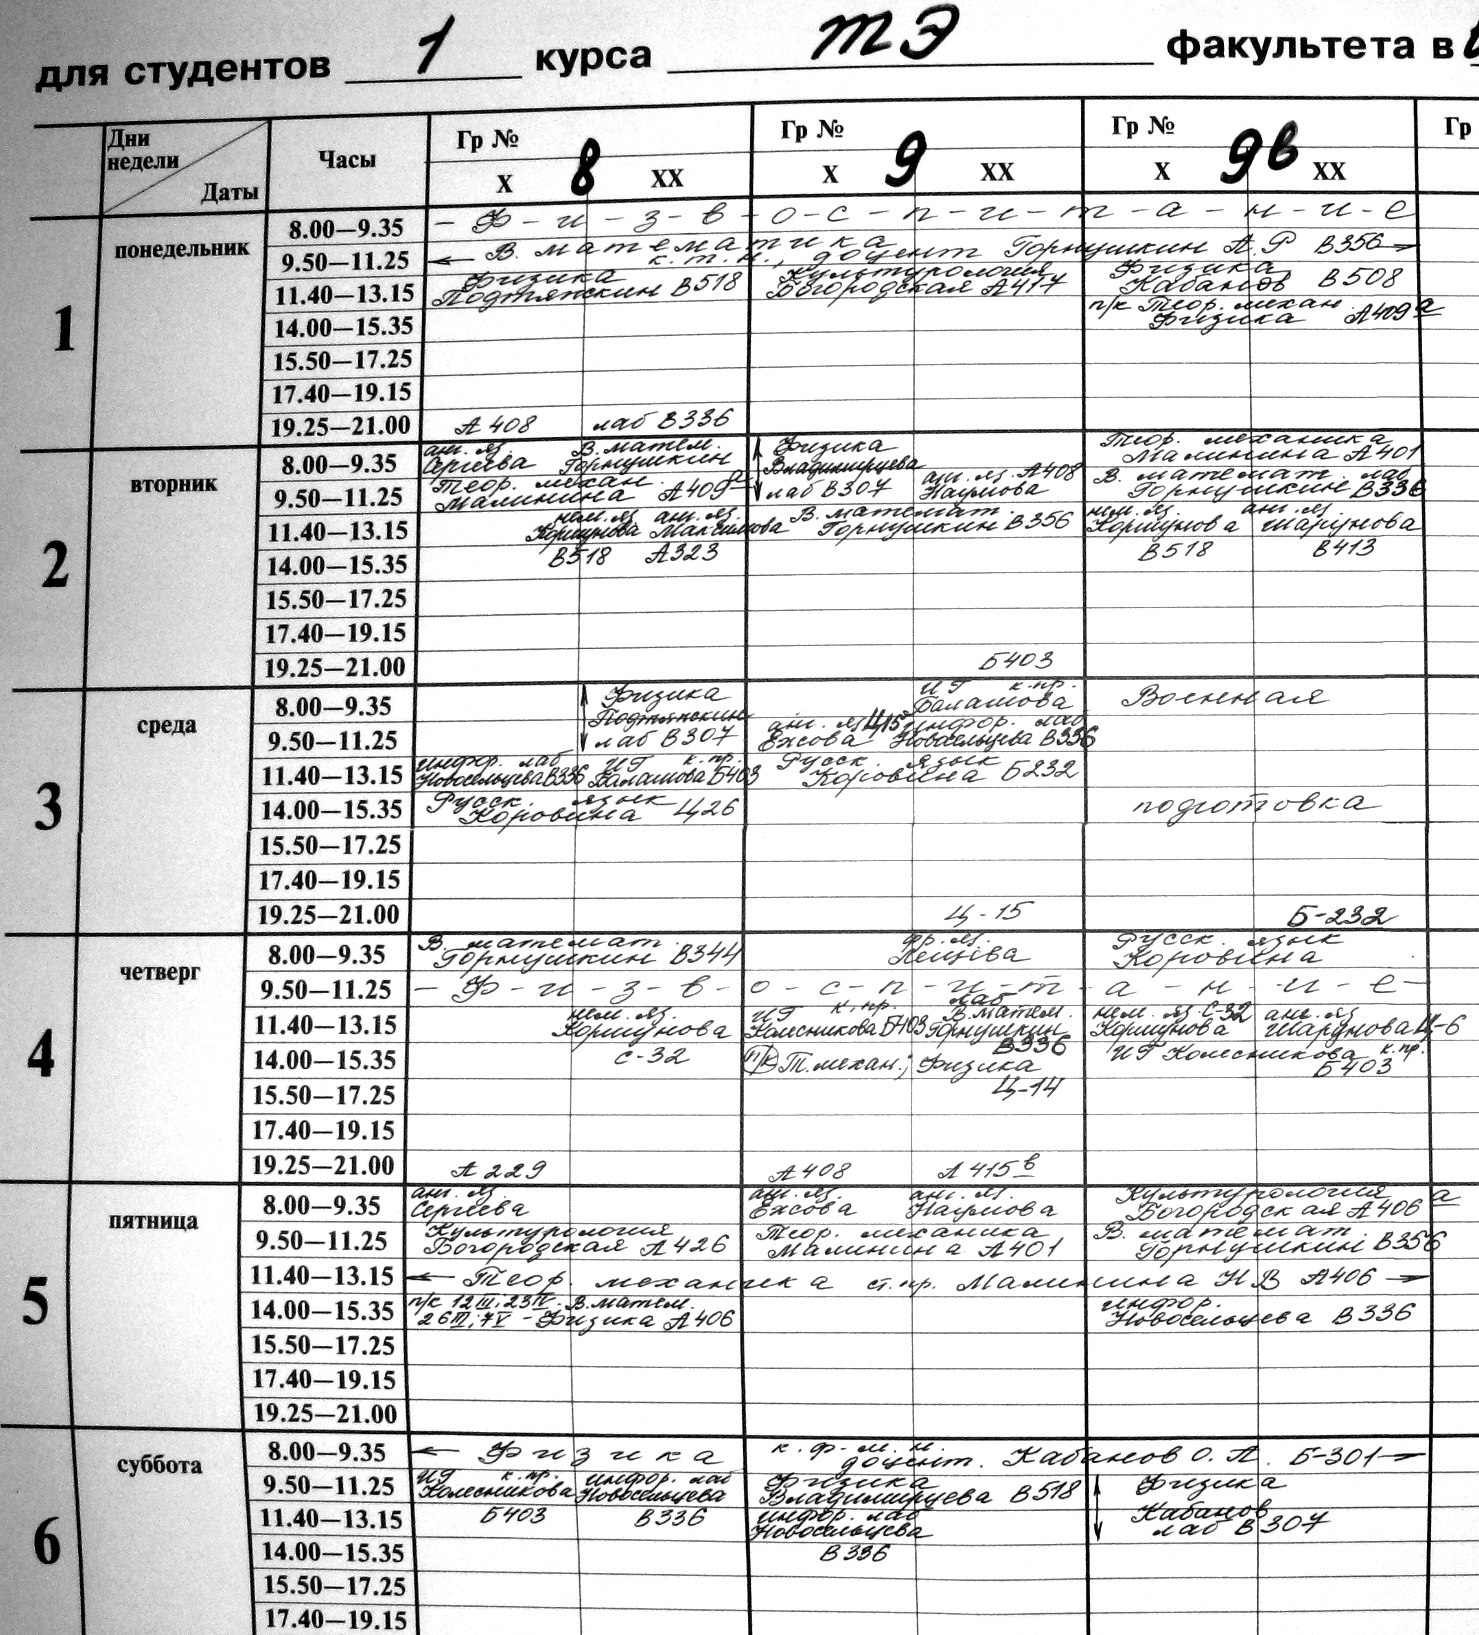 для студентов 1 курса ТЭ факультета в
Дни недели Даты Часы Гр № 8 X XX Гр № 9 X XX Гр № 9в X XX Гр
1 понедельник
8.00—9.35 - Ф - и - з - в - о - с - п - и - т - а - н - и - е
9.50—11.25 ← В. математика к.т.н., доцент Горнушкин А.Р В356 →
11.40—13.15 Физика Подтяжкин В518 Культурология Богородская А417 Физика Кабанов В508
14.00—15.35 п/к Теор. механ. Физика А409а
15.50—17.25
17.40—19.15
19.25—21.00 А408 лаб В336
2 вторник
8.00—9.35 ан. яз. Сергеева В.матем. Горнушкин Физика Владимирцева Теор. механика Малинина А401
9.50—11.25 Теор. механ. Малинина А409а лаб В307 ан. яз. А408 Наумова В. математ. лаб Горнушкин В336
11.40—13.15 нем. яз Коршунова ан. яз. Максимова В. математ. Горнушкин В356 нем. яз. Коршунова ан. яз. Шарунова
14.00—15.35 В518 А323 В518 В413
15.50—17.25
17.40—19.15
19.25—21.00 Б403
3 среда
8.00—9.35 Физика Подтяжкин ИГ к.пр. Балашова Военная
9.50—11.25 лаб В307 ан. яз Ц15 Ежова инфор. лаб Новосельцева В336
11.40—13.15 инфор. лаб Новосельцева В336 ИГ к.пр. Балашова Б403 Русск. язык Коровина Б232
14.00—15.35 Русск. язык Коровина Ц26 подготовка
15.50—17.25
17.40—19.15
19.25—21.00 Ц-15 Б-232
4 четверг
8.00—9.35 В. математ. Горнушкин В344 фр. яз. Русск. язык Коровина
9.50—11.25 - Ф - и - з - в - о - с - п - и - т - а - н - и - е -
11.40—13.15 нем. яз. Коршунова ИГ к.пр. Колесникова Б403 лаб В.матем. Горнушкин нем. яз. С-32 Коршунова ан. яз. Шарунова Ц-6
14.00—15.35 С-32 п/к Т.механ.; Физика В336 ИГ Колесникова к.пр. Б403
15.50—17.25 Ц-14
17.40—19.15
19.25—21.00 А229 А408 А415в
5 пятница
8.00—9.35 ан. яз. Сергеева ан. яз. Ежова ан. яз. Наумова Культурология Богородская А406а
9.50—11.25 Культурология Богородская А426 Теор. механика Малинина А401 В. математ. Горнушкин В356
11.40—13.15 ← Теор. механика ст.пр. Малинина Н В А406 →
14.00—15.35 п/к 12 III; 23 IV - В.матем. 26 III; 7 V - Физика А406 инфор. Новосельцева В336
15.50—17.25
17.40—19.15
19.25—21.00
6 суббота
8.00—9.35 ← Физика к.ф-м.н. доцент. Кабанов О.А. Б-301 →
9.50—11.25 ИГ к.пр. Колесникова инфор. лаб Новосельцева Физика Владимирцева В518 Физика
11.40—13.15 Б403 В336 инфор. лаб Новосельцева Кабанов лаб В307
14.00—15.35 В336
15.50—17.25
17.40—19.15